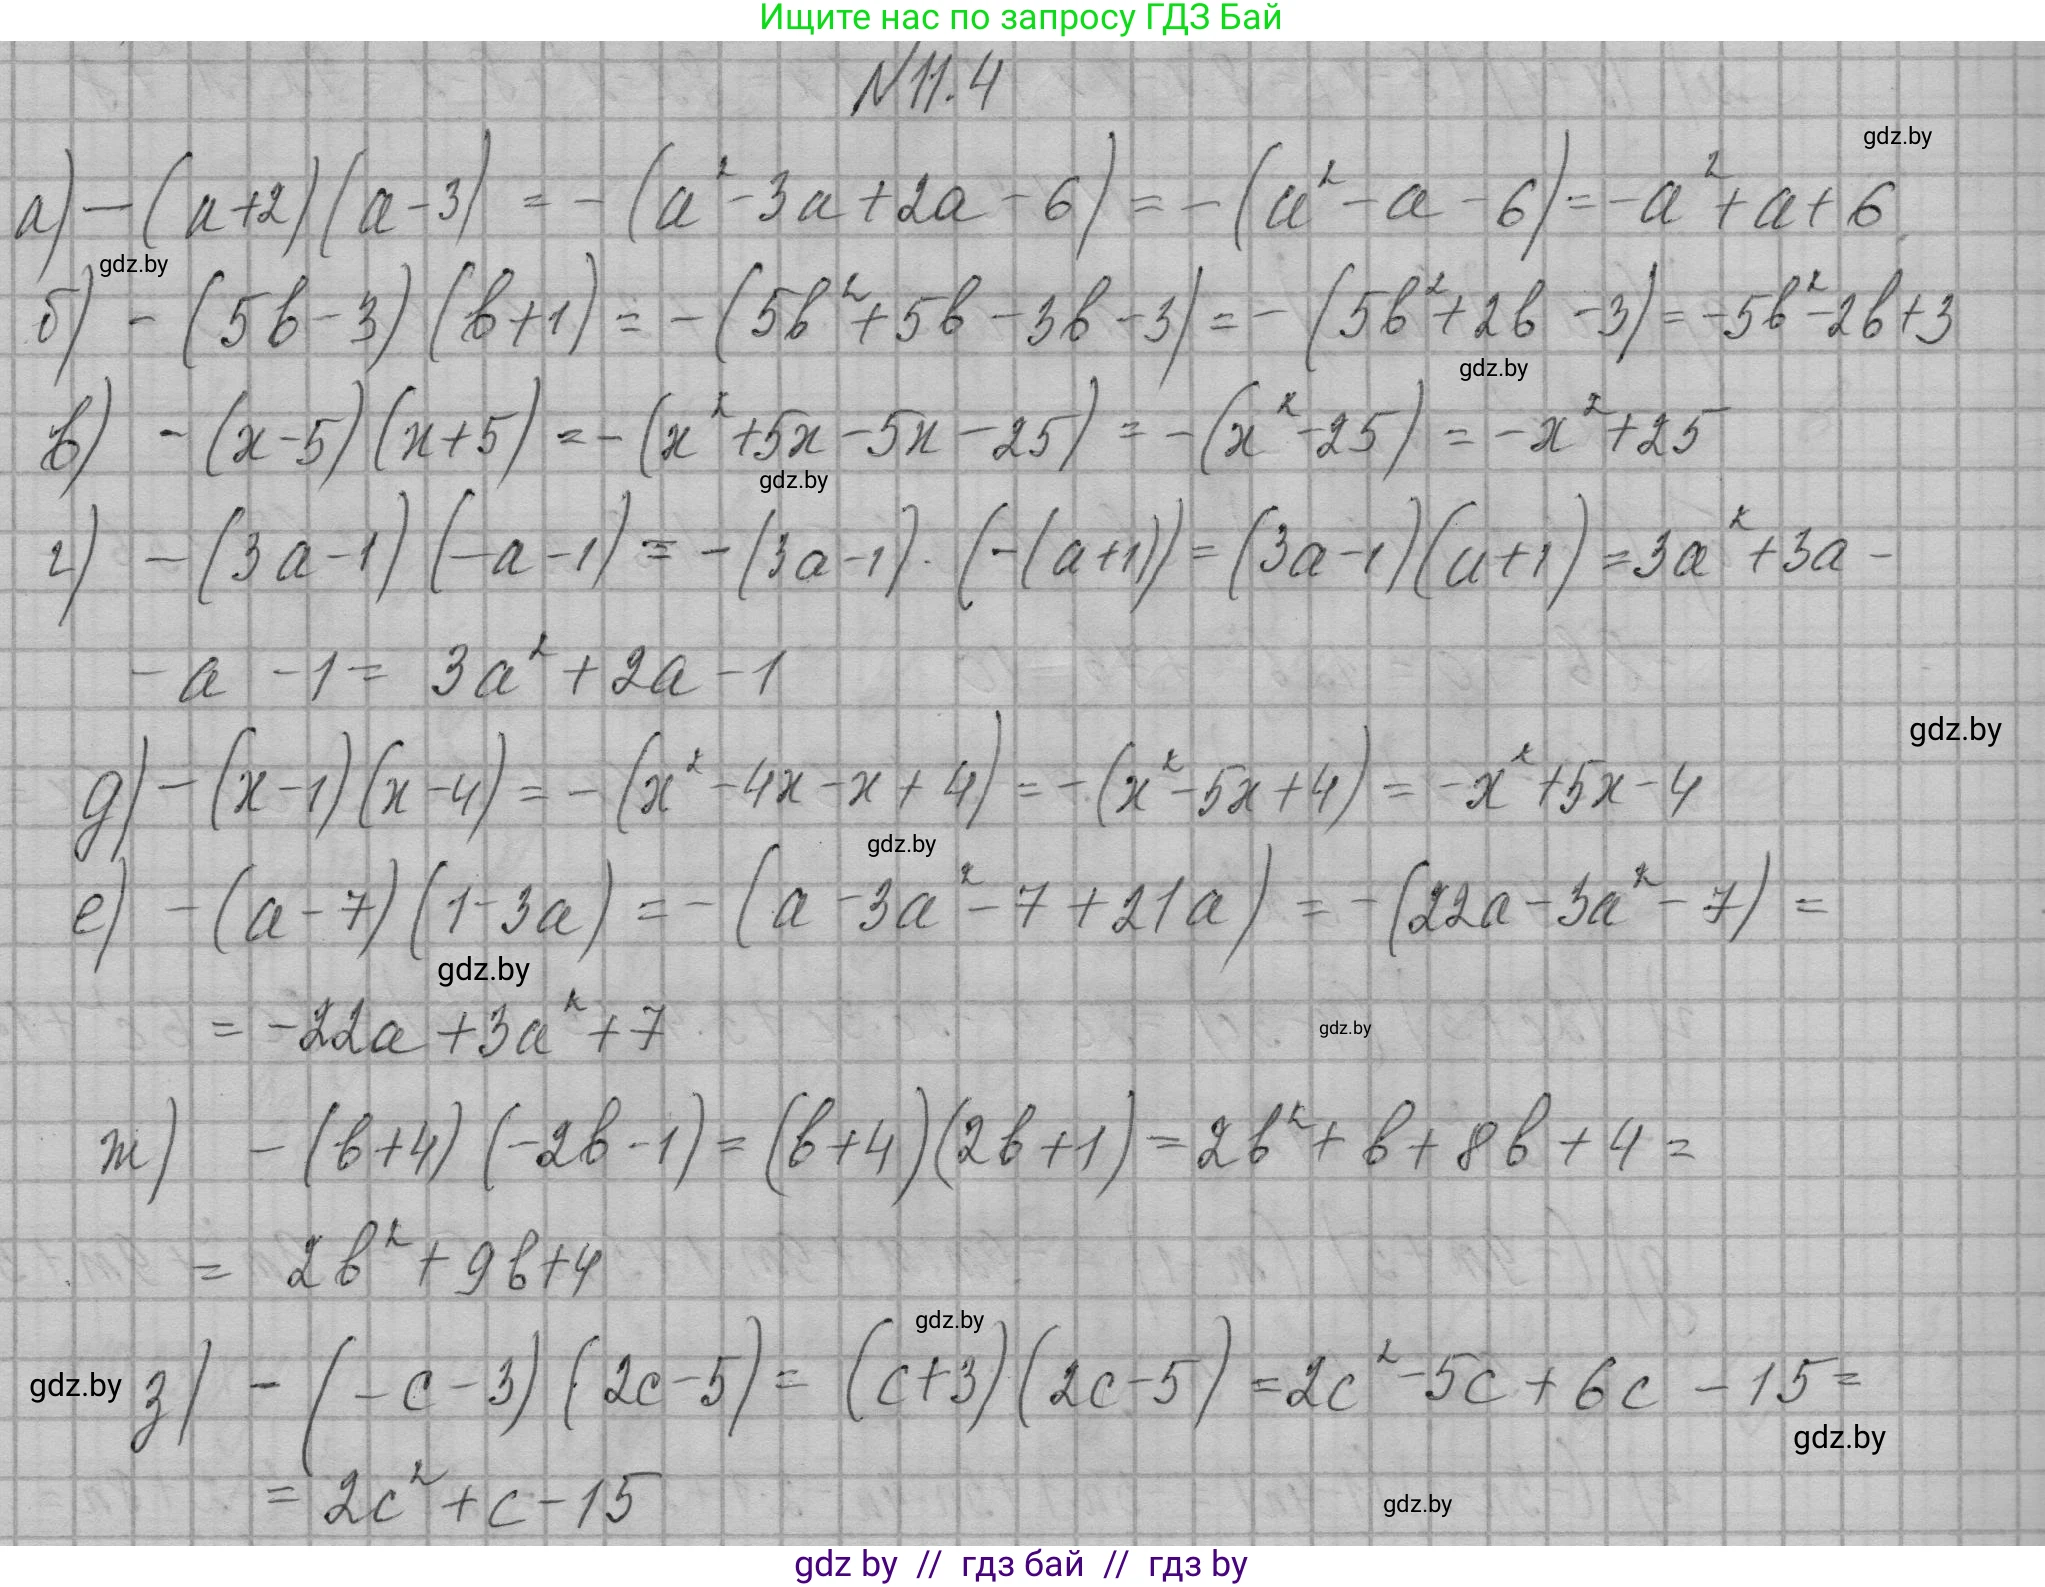 Ищите нас по запросу ГДЗ Бай
№11.4
gdz.by
а) -(a+2)(a-3) = -(a²-3a+2a-6) = -(a²-a-6) = -a²+a+6
gdz.by
б) -(5b-3)(b+1) = -(5b²+5b-3b-3) = -(5b²+2b-3) = -5b²-2b+3
gdz.by
в) -(x-5)(x+5) = -(x²+5x-5x-25) = -(x²-25) = -x²+25
gdz.by
г) -(3a-1)(-a-1) = -(3a-1)·(-(a+1)) = (3a-1)(a+1) = 3a²+3a-
-a-1 = 3a²+2a-1
gdz.by
д) -(x-1)(x-4) = -(x²-4x-x+4) = -(x²-5x+4) = -x²+5x-4
gdz.by
е) -(a-7)(1-3a) = -(a-3a²-7+21a) = -(22a-3a²-7) =
gdz.by
= -22a+3a²+7
gdz.by
ж) -(b+4)(-2b-1) = (b+4)(2b+1) = 2b²+b+8b+4 =
= 2b²+9b+4
gdz.by
gdz.by
з) -(-c-3)(2c-5) = (c+3)(2c-5) = 2c²-5c+6c-15 =
gdz.by
= 2c²+c-15
gdz.by
gdz by // гдз бай // гдз by